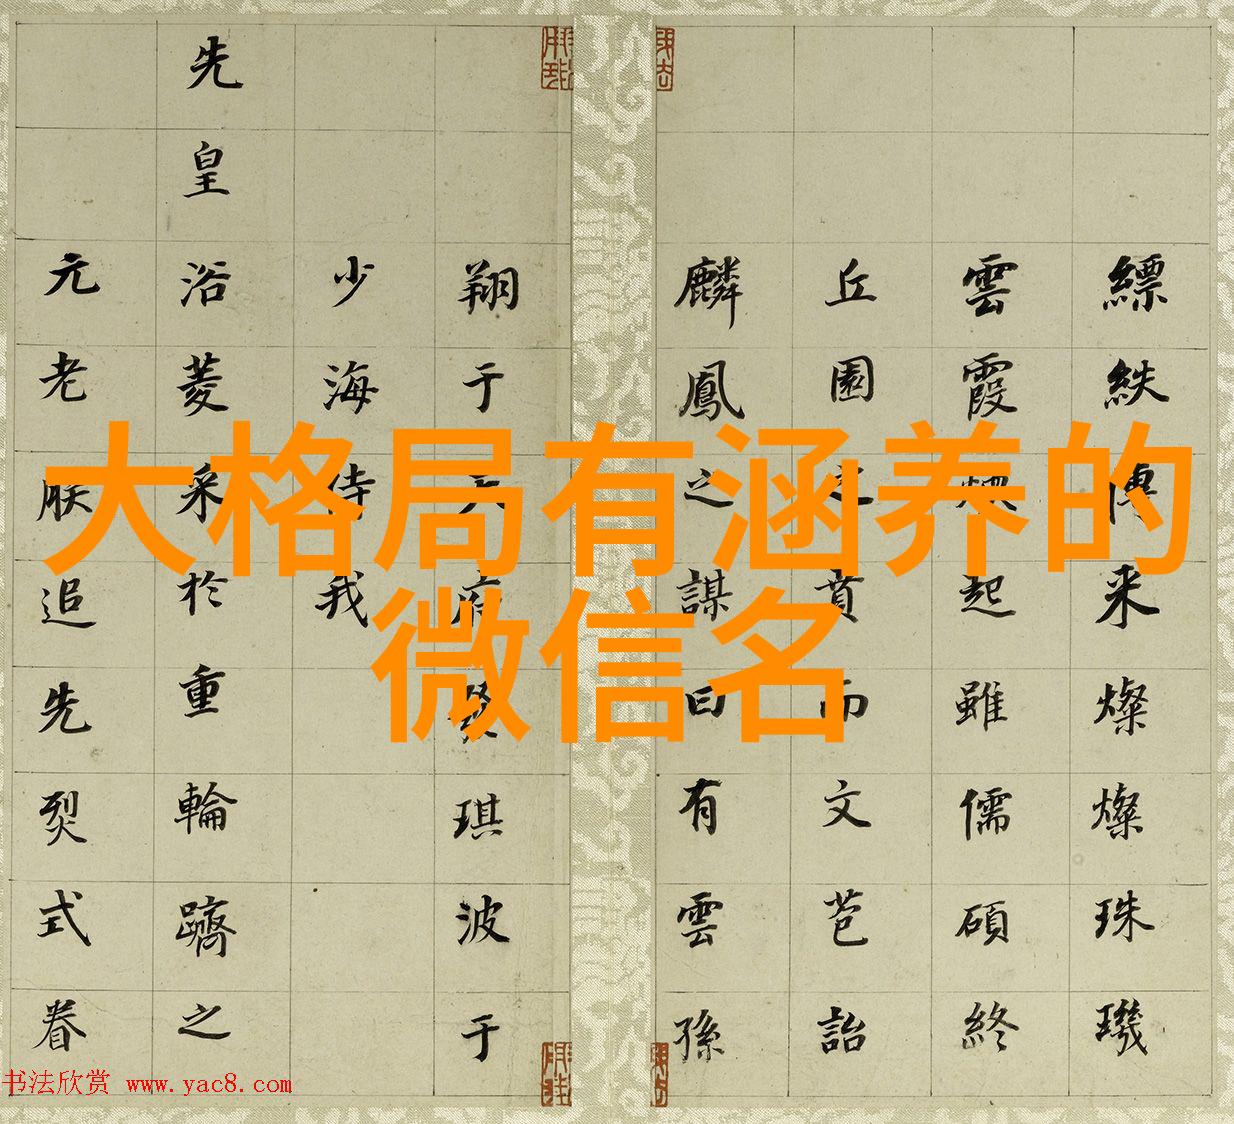 大格局有涵养的
微信名
縹紩傳来燦燦珠璣
雲霞起雖儒碩終
丘園之賁而文芑詒
麟鳳之謀曰有雲孫
翔于天府發琪波于
少海侍我
先皇浴菱采於重輪躋之
元老朕追先烈式眷
书法欣赏 www.yac8.com